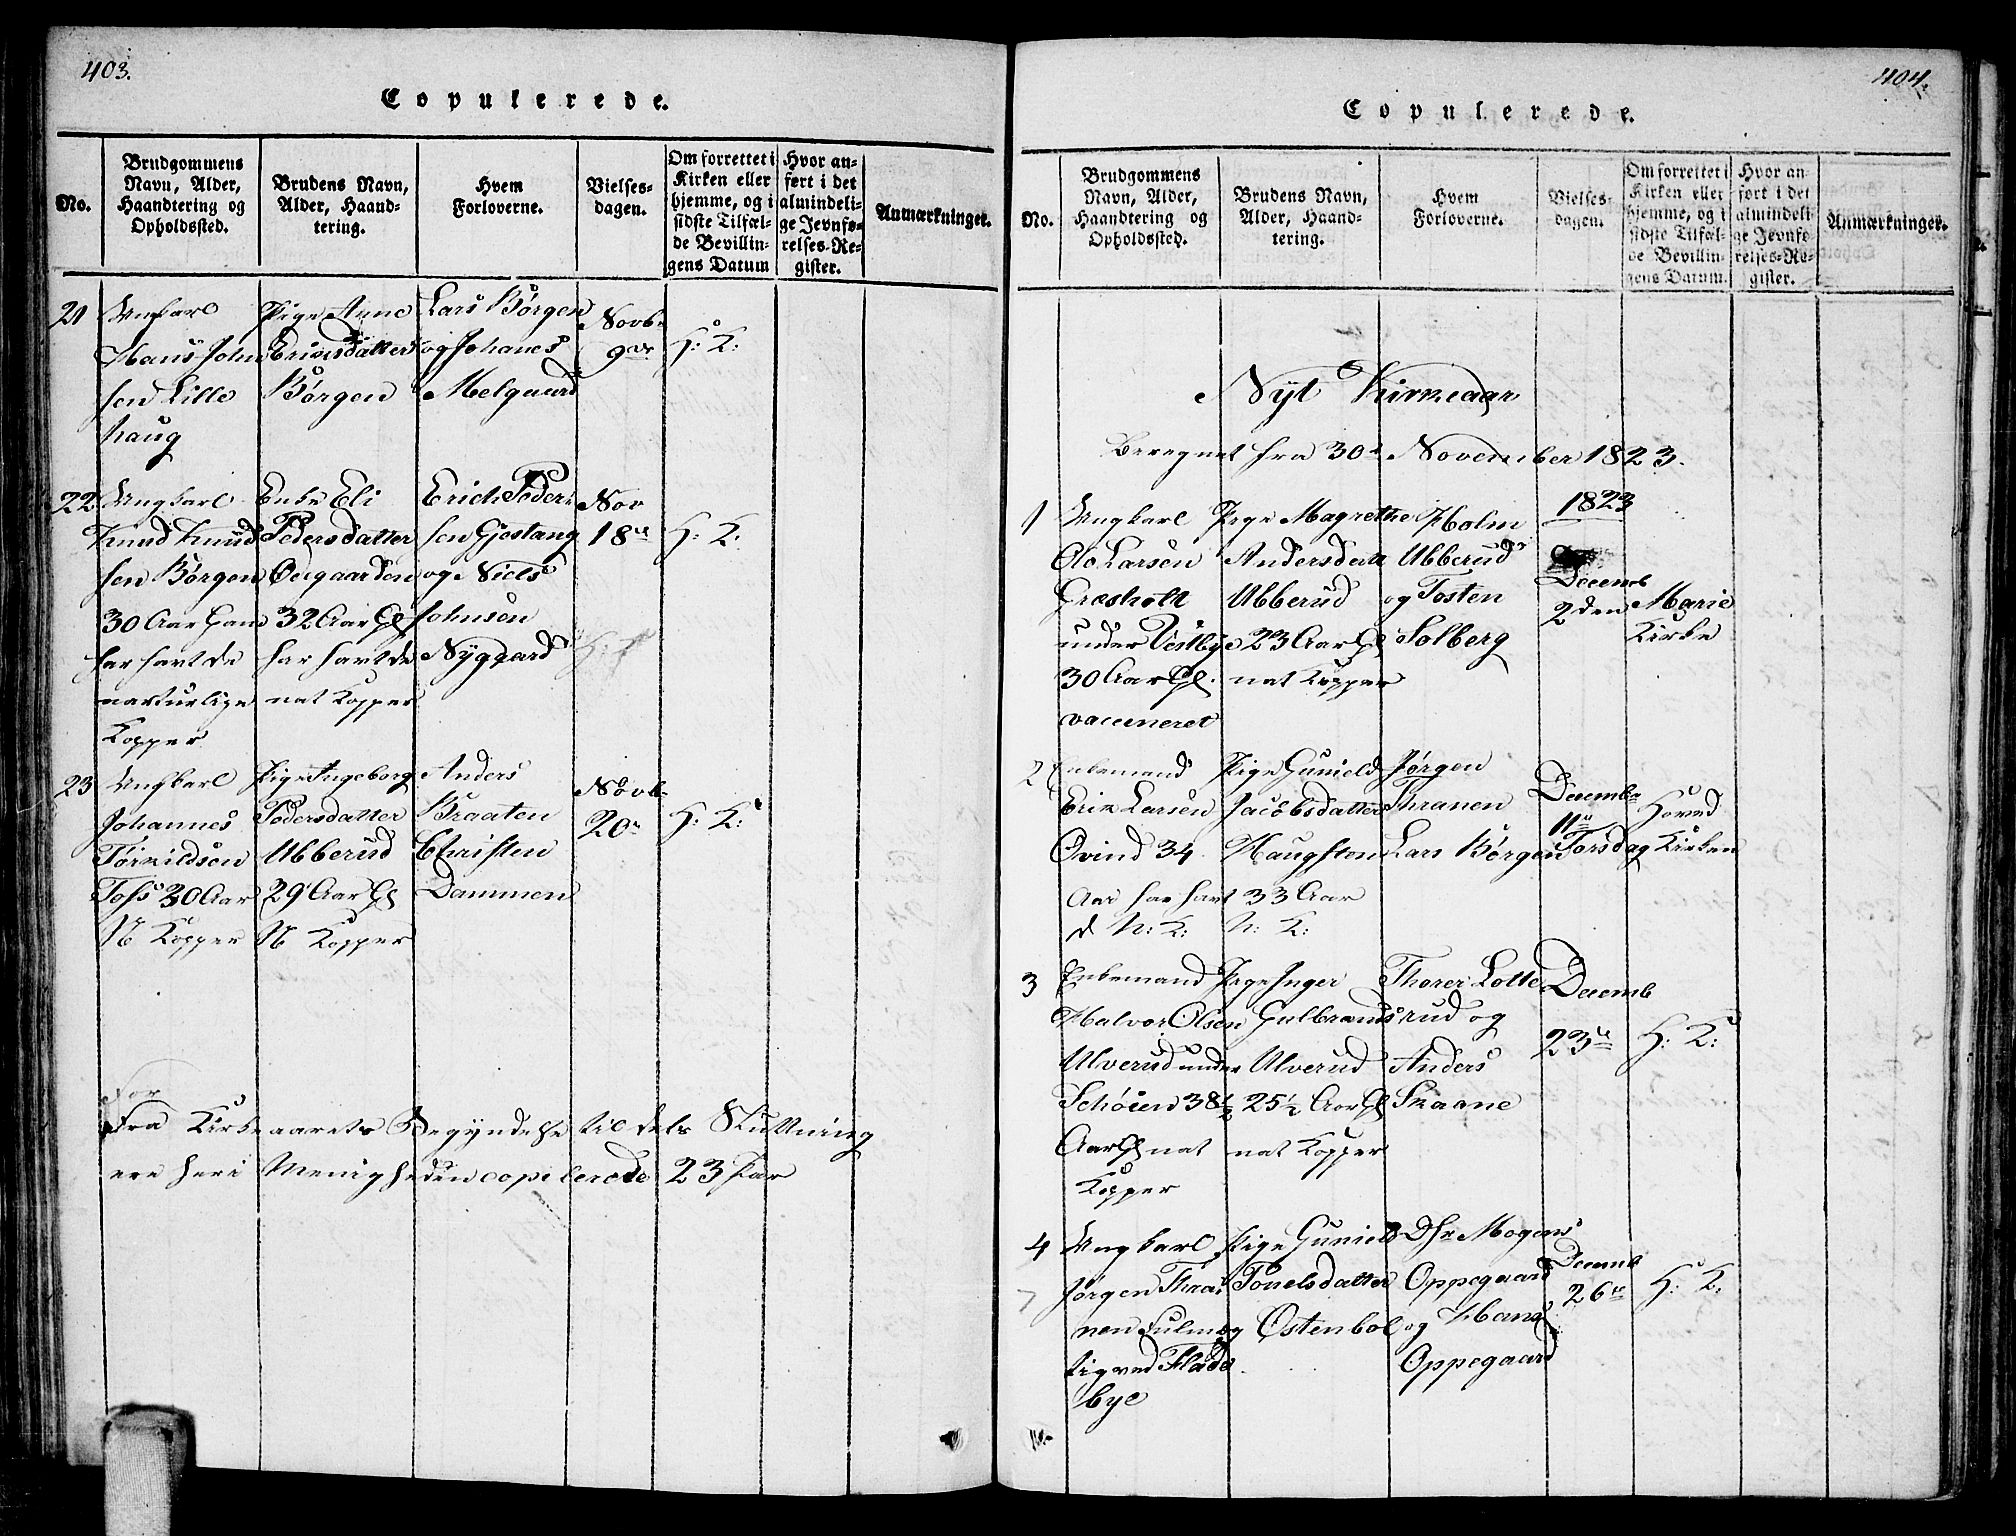 403.
Copulerede.
No.
Brudgommens
Navn, Alder,
Haandtering og
Opholdssted.
Brudens Navn,
Alder, Haand-
tering.
Hvem
Forloverne.
Vielses-
dagen.
Om forrettet i
Kirken eller
hjemme, og i
sidste Tilfæl-
de Bevillin-
gens Datum
Hvor an-
ført i det
almindeli-
ge Jevnfø-
relses-Re-
gister.
Anmærkninger.
21
Ungkarl
Hans John
sen Lille
haug
Pige Anne
Erichsdatter
Børgen
Lars Børgen
og Johanes
Melgaard
Novb.
9de
H: K:
22
Ungkarl
Knud Knud
sen Børgen
30 Aar Gam
har havt de
naturlige
Kopper
Enke Eli
Pedersdatter
Øegaarden
32 Aar Gl
har havt de
nat Kopper
Erich Peder
sen Gjestang
og Niels
Johnsen
Nyggard
Nov
18de
H: K:
23
Ungkarl
Johannes
Tørkildsen
Toss 30 Aar
N Kopper
Pige Ingeborg
Pedersdatter
Ubberud
29 Aar Gl
N Kopper
Anders
Braaten
Christen
Dammen
Novb.
20
H: K:
Fra Kirkeaarets Begyndelse til dets Slutning
ere heri Menigheden copulerede 23 Par
404.
Copulerede.
No.
Brudgommens
Navn, Alder,
Haandtering og
Opholdssted.
Brudens Navn,
Alder, Haand-
tering.
Hvem
Forloverne.
Vielses-
dagen.
Om forrettet i
Kirken eller
hjemme, og i
sidste Tilfæl-
de Bevillin-
gens Datum.
Hvor an-
ført i det
almindeli-
ge Jevnfø-
relses-Re-
gister.
Anmærkninger.
Nyt Kirkeaar
Beregnet fra 30 November 1823.
1
Ungkarl
Ole Larsen
Græsholt
under Vestbye
30 Aar Gl.
vaccineret
Pige Magrethe
Andersdatt
Ubberud
23 Aar Gl
nat Kopper
Holm
Ubberud
og Tosten
Solberg
1823
Decemb
2den
Marie
Kirke
2
Enkemand
Erik Larsen
Øvind 34
Aar har havt
d N: K:
Pige Gunield
Jacobsdatter
Haugsten
33 Aar
N: K:
Jørgen
Thranen
Lars Børgen
Decembr
11te
Torsdag
Hoved
Kirken
3
Enkemand
Halvor Olsen
Ulverud under
Schøien 38½
Aar Gl nat
Kopper
Pige Inger
Gulbrands
Ulverud
25½ Aar Gl
nat Kopper
Thorer Lotte
rud og
Anders
Skaane
Decemb
23de
H: K:
4
Ungkarl
Jørgen Thra
nen
tig ved Flade
bye
Pige Gunield
Povelsdatter
Østenbøl
Dhr Mogens
Oppegaard
og Hans
Oppegaard
Decemb
26de
H: K: